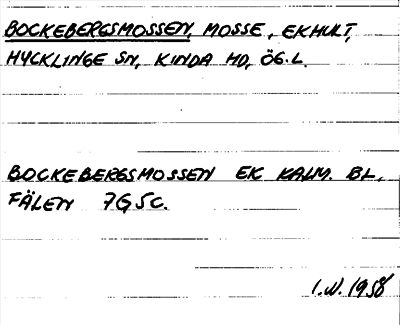 BOCKEBERGSMOSSEN, MOSSE, EKHULT,
HYCKLINGE SN, KINDA HD, ÖG.L.
BOCKEBERGSMOSSEN EK KALM. BL.
FÄLEN 7G5C.
I.N. 1958